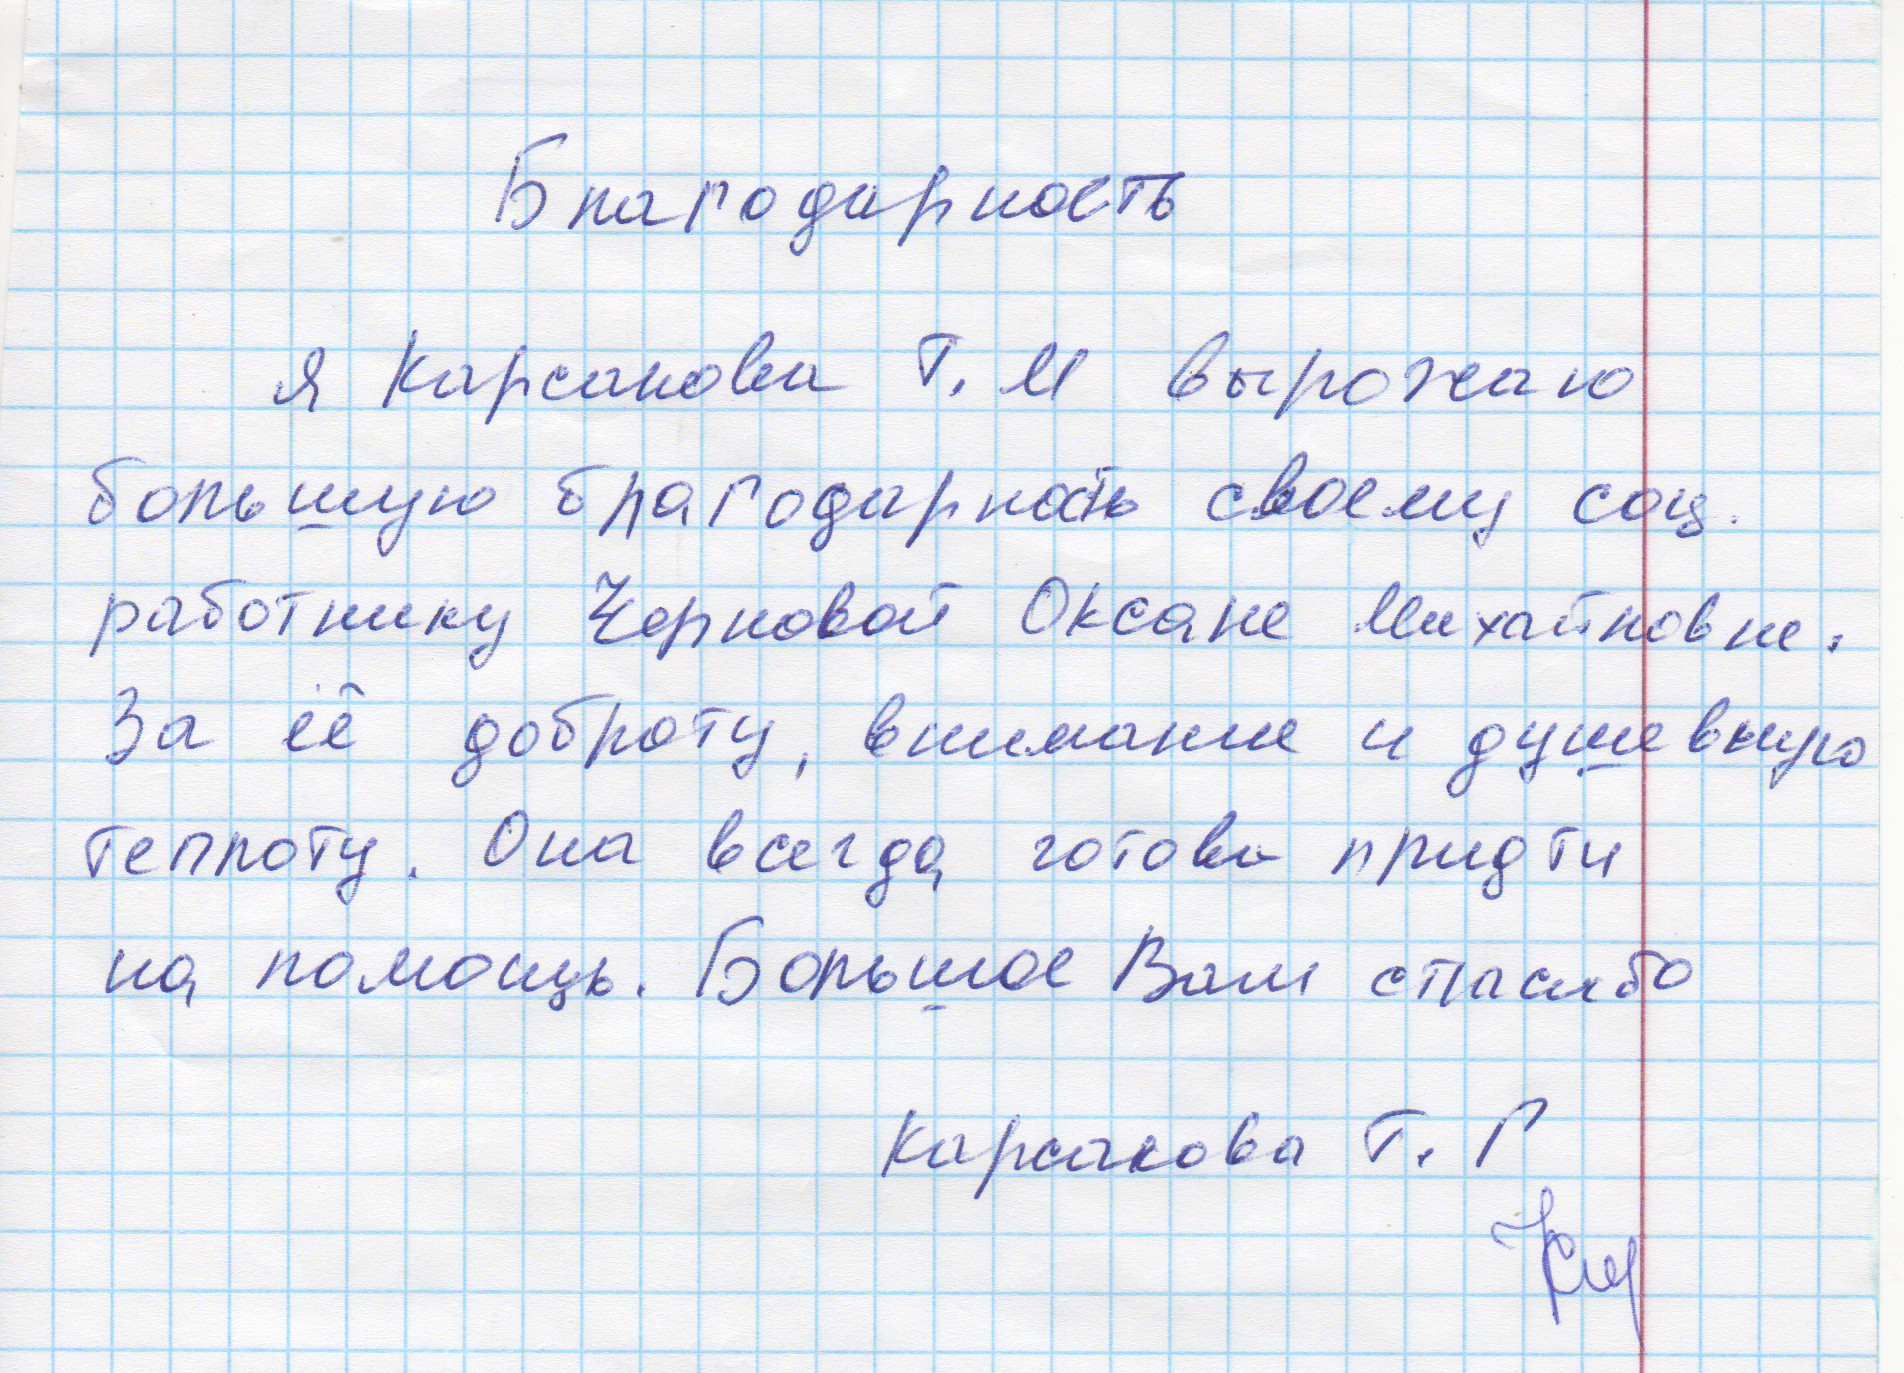 Благодарность
Я Карсакова Т. М вырожаю
большую благодарность своему соц.
работнику Черновой Оксане Михайловне.
За её доброту, внимание и душевную
теплоту. Она всегда готова придти
на помощь. Большое Вам спасибо
Карсакова Т. Г